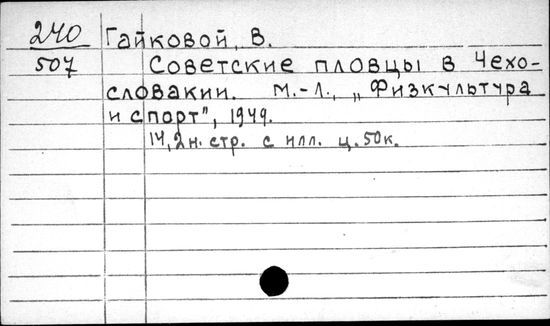 240 Гайковой, В.
507 Советские пловцы в Чехо-
словакии. М.-Л., „Физкультура
и спорт", 1949.
14, 2н. стр. с илл. ц. 50к.